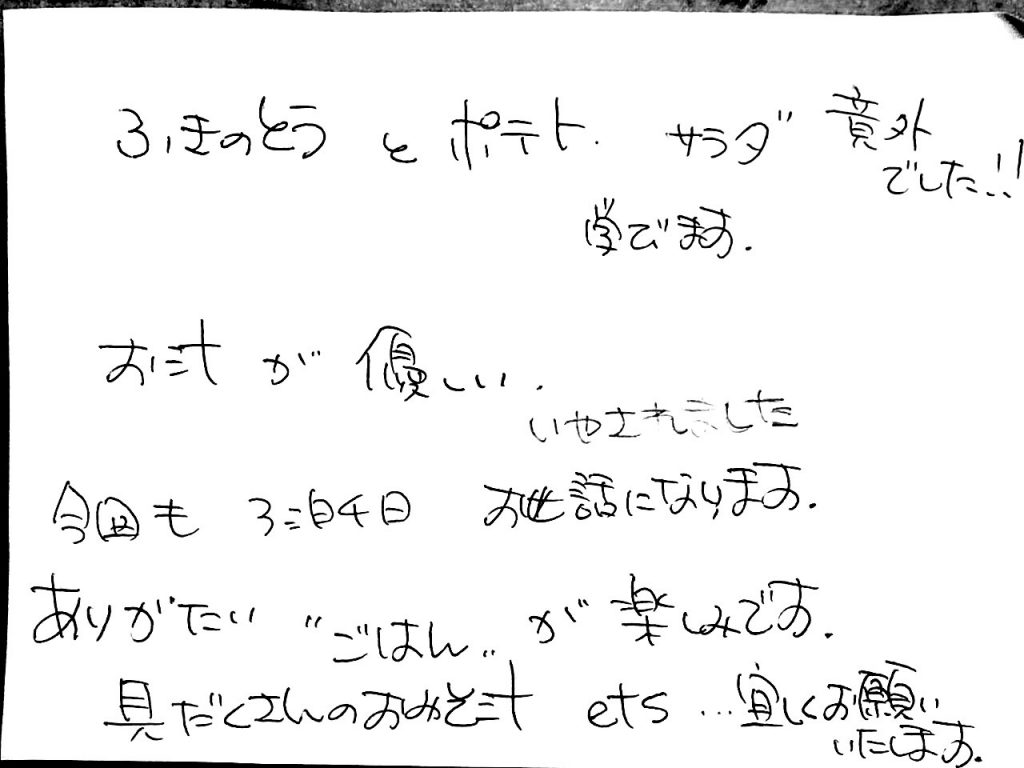 ふきのとう と ポテト. サラダ 意外
でした!!
学びます.
お汁 が 優しい.
いやされました
今回も 3泊4日 お世話になります.
ありがたい "ごはん" が 楽しみです.
具だくさんのおみそ汁 ets ... 宜しくお願い
いたします.